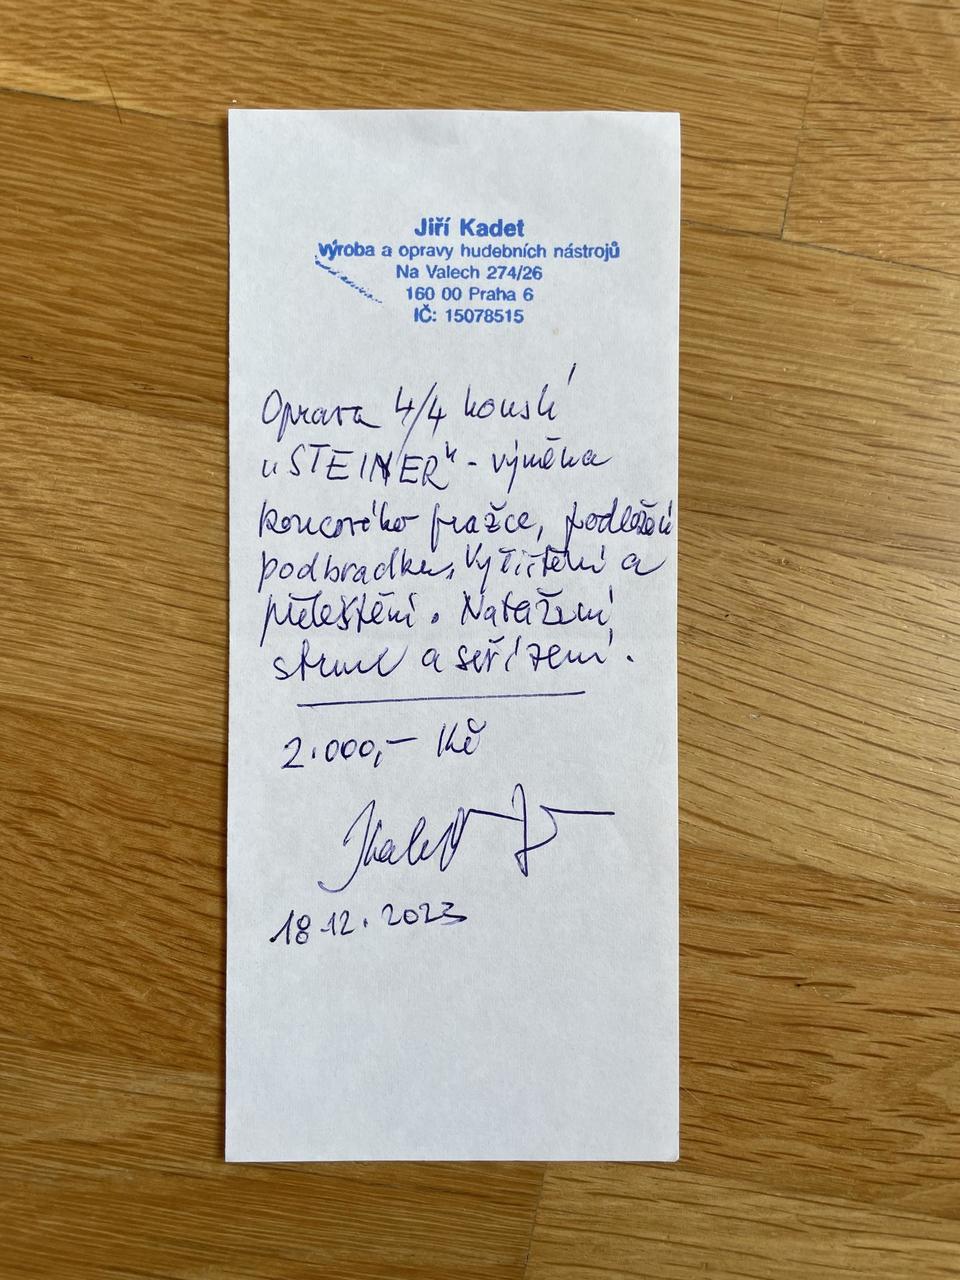 Jiří Kadet
Výroba a opravy hudebních nástrojů
Na Valech 274/26
160 00 Praha 6
IČ: 15078515
Oprava 4/4 houslí
"STEINER" - výměna
koncového pražce, podložení
podbradku, Vyčištění a
přeleštění. Natažení
strun a seřízení.
2.000,- Kč
18.12.2023